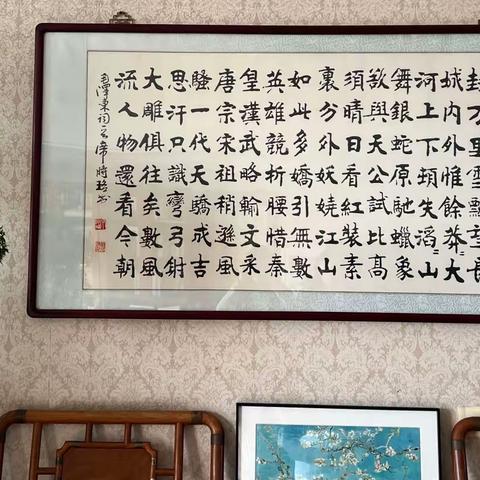 封万里雪飄望長
城内外惟餘莽〻大
河上下頓失滔〻山
舞銀蛇原馳蠟象
欲與天公試比高
須晴日看紅裝素
裹分外妖嬈江山
如此多嬌引無數
英雄競折腰惜秦
皇漢武略輸文采
唐宗宋祖稍遜風
騷一代天驕成吉
思汗只識彎弓射
大雕俱往矣數風
流人物還看今朝
毛澤東詞